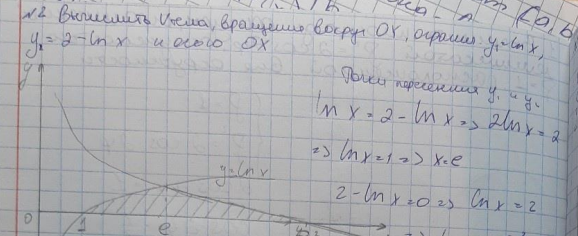 №2 Вычислить V тела, вращения вокруг OX, огранич y₁=ln x,
y₂=2-ln x и осью OX
Точки пересечения y₁ и y₂
ln x=2-ln x => 2ln x=2
=> ln x=1 => x=e
y=ln x
2-ln x=0 => ln x=2
y
0 1 e